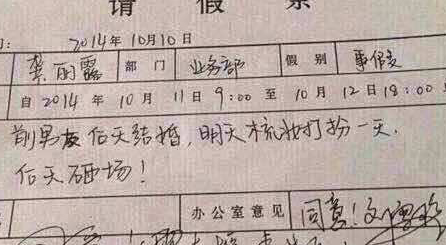 请 假 条
2014年 10月10日
龚丽露 部 门 业务部 假 别 事假
自2014 年 10 月 11日 9:00 至 10 月 12日18:00
前男友后天结婚,明天梳妆打扮一天,
后天砸场!
办公室意见 同意!